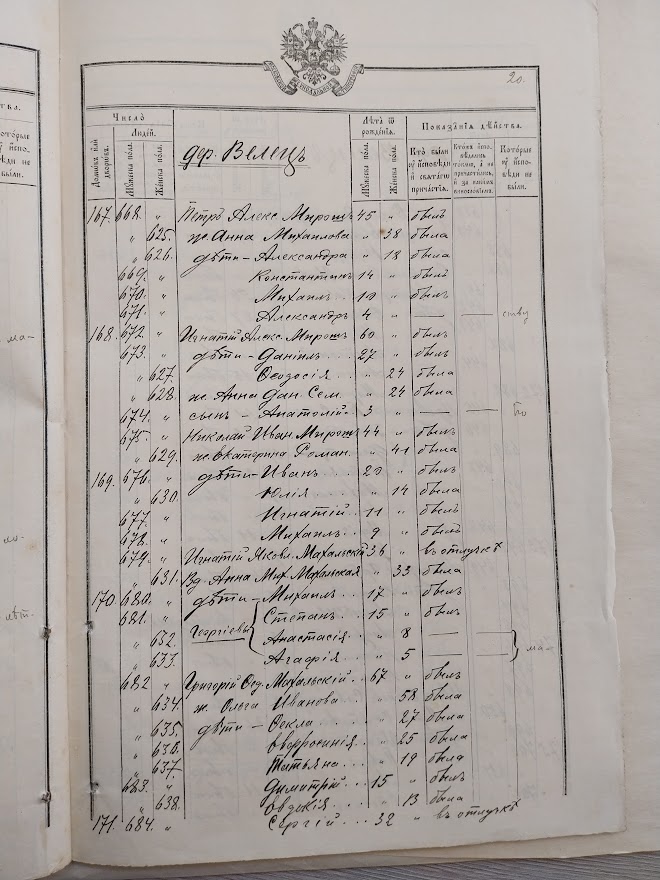 20.
Число
Людей.
Лѣта ѿ рожденія.
Показанія дѣйства.
Домовъ или дворовъ.
Мужеска пола.
Женска пола.
дер. Велецъ
Кто были у исповѣди и святаго причастія.
Которые у исповѣди не были.
167. 668. " Петръ Алекс. Мирош 45 " былъ
" 625. ж. Анна Михаилова " 38 была
" 626. дѣти – Александра " 18 была
669. " Константинъ 14 " былъ
670. " Михаилъ 10 " былъ
671. " Александръ 4 " — — ству
168. 672. " Игнатій Алекс. Мирош 60 " былъ
673. " дѣти – Даніилъ 27 " былъ
" 627. Ѳеодосія " 24 была
" 628. ж. Анна Дан. Сем. " 24 была
674. " сынъ – Анатолій 3 " — —
675. " Николай Иван. Мирош 44 " былъ
" 629. ж. Екатерина Роман. " 41 была
169. 676. " дѣти – Иванъ 20 " былъ
" 630. Юлія " 14 была
677. " Игнатій 11 " былъ
678. " Михаилъ 9 " былъ
679. " Игнатій Яковл. Махальскій 36 " въ отлучкѣ
" 631. Вд. Анна Мих. Махальская " 33 была
170. 680. " дѣти – Михаилъ 17 " былъ
681. " Георгіевы Степанъ 15 " былъ
" 632. Анастасія " 8 — —
" 633. Агафія " 5 — — мал-
682 " Григорій Ѳед. Михальскій 67 " былъ
" 634. ж. Ольга Иванова " 58 была
" 635. дѣти – Ѳекла " 27 была
" 636. Евфросинія " 25 была
" 637. Татьяна " 19 была
683. " Димитрій 15 " былъ
" 638. Евдокія " 13 была
171. 684. " Сергій 32 " въ отлучкѣ